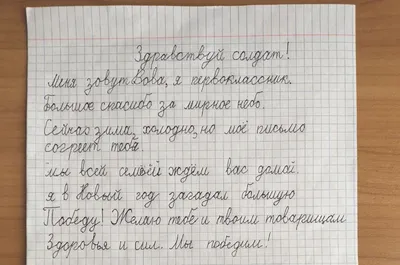 Здравствуй солдат!
Меня зовут Вова, я первоклассник.
Большое спасибо за мирное небо.
Сейчас зима, холодно, но моё письмо
согреет тебя.
мы всей семьёй ждём вас домой.
я в Новый год загадал большую
Победу! Желаю тебе и твоим товарищам
Здоровья и сил. Мы победим!